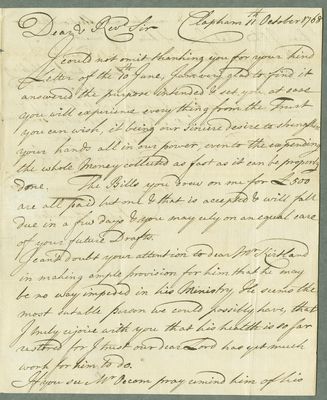 Dear & Revd Sir Clapham 11th October 1768
I could not omit thanking you for your kind
Letter of the 10th June, I am very glad to find it
answered the purpose intended & set you at ease
you will experience every thing from the Trust
you can wish, it being our sincere desire to strengthen
your hands all in our power, even to the expending
the whole Money collected as fast as it can be properly
done. The Bills you drew on me for £300
are all paid but one & that is accepted & will fall
due in a few days & you may rely on an equal care
of your future Drafts.
I cant doubt your attention to dear Mr Kirtland
in making ample provision for him that he may
be no way impeded in his Ministry, He seems the
most sutable person we could possibly have, &
I truly rejoice with you that his health is so far
restored for I trust our dear Lord has yet much
work for him to do.
If you see Mr Occom pray remind him of his